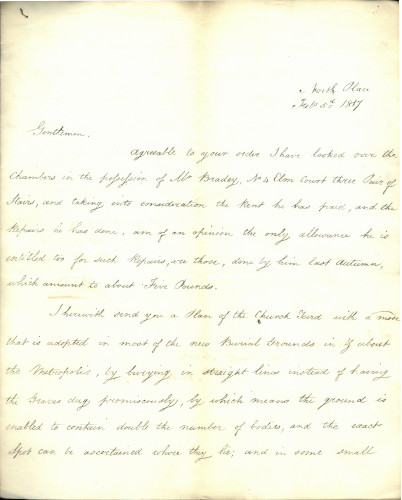 North Place
Feb. 5th 1817
Gentlemen.
agreeable to your order I have looked over the
Chambers in the possession of Mr Bradey, No 4 Elm Court three Pair of
Stairs, and taking into consideration the Rent he has paid, and the
Repairs he has done, am of an opinion the only allowance he is
intitled too for such Repairs, are those, done by him last Autumn,
which amount to about Five Pounds.
I herewith send you a Plan of the Church Yard with a mode
that is adopted in most of the new Burial Grounds in & about
the Metropolis, by burying in straight lines instead of having
the Graves dug promiscuously, by which means the ground is
enabled to contain double the number of bodies, and the exact
Spot can be ascertained where they lie; and in some small